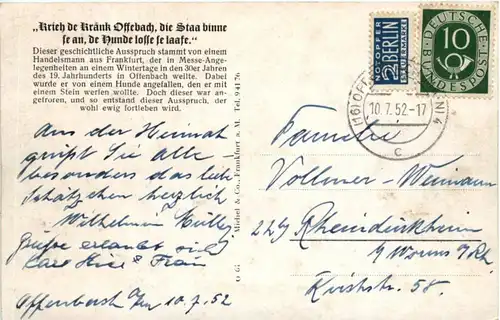 „Krieh de Kränk Offebach, die Staa binne
se an, de Hunde losse se laafe."
Dieser geschichtliche Ausspruch stammt von einem
Handelsmann aus Frankfurt, der in Messe-Ange-
legenheiten an einem Wintertage in den 30er Jahren
des 19. Jahrhunderts in Offenbach weilte. Dabei
wurde er von einem Hunde angefallen, den er mit
einem Stein werfen wollte. Doch dieser war an-
gefroren, und so entstand dieser Ausspruch, der
wohl ewig fortleben wird.
Aus der Heimat
grüßt Sie alle
besonders das liebe
herzlich
Wilhelmine
Grüße erlaubt sich
Karl & Frau
Offenbach a/m 10.7.52
Michel & Co., Frankfurt a. M. Tel. 94176
NOTOPFER
2 BERLIN
STEUERMARKE
DEUTSCHE
BUNDESPOST
10
(16) OFF
10.7.52-17
c
Familie
Vollmer-Weimann
22b Rheindürkheim
b/ Worms a/Rh
Kirchstr. 58.